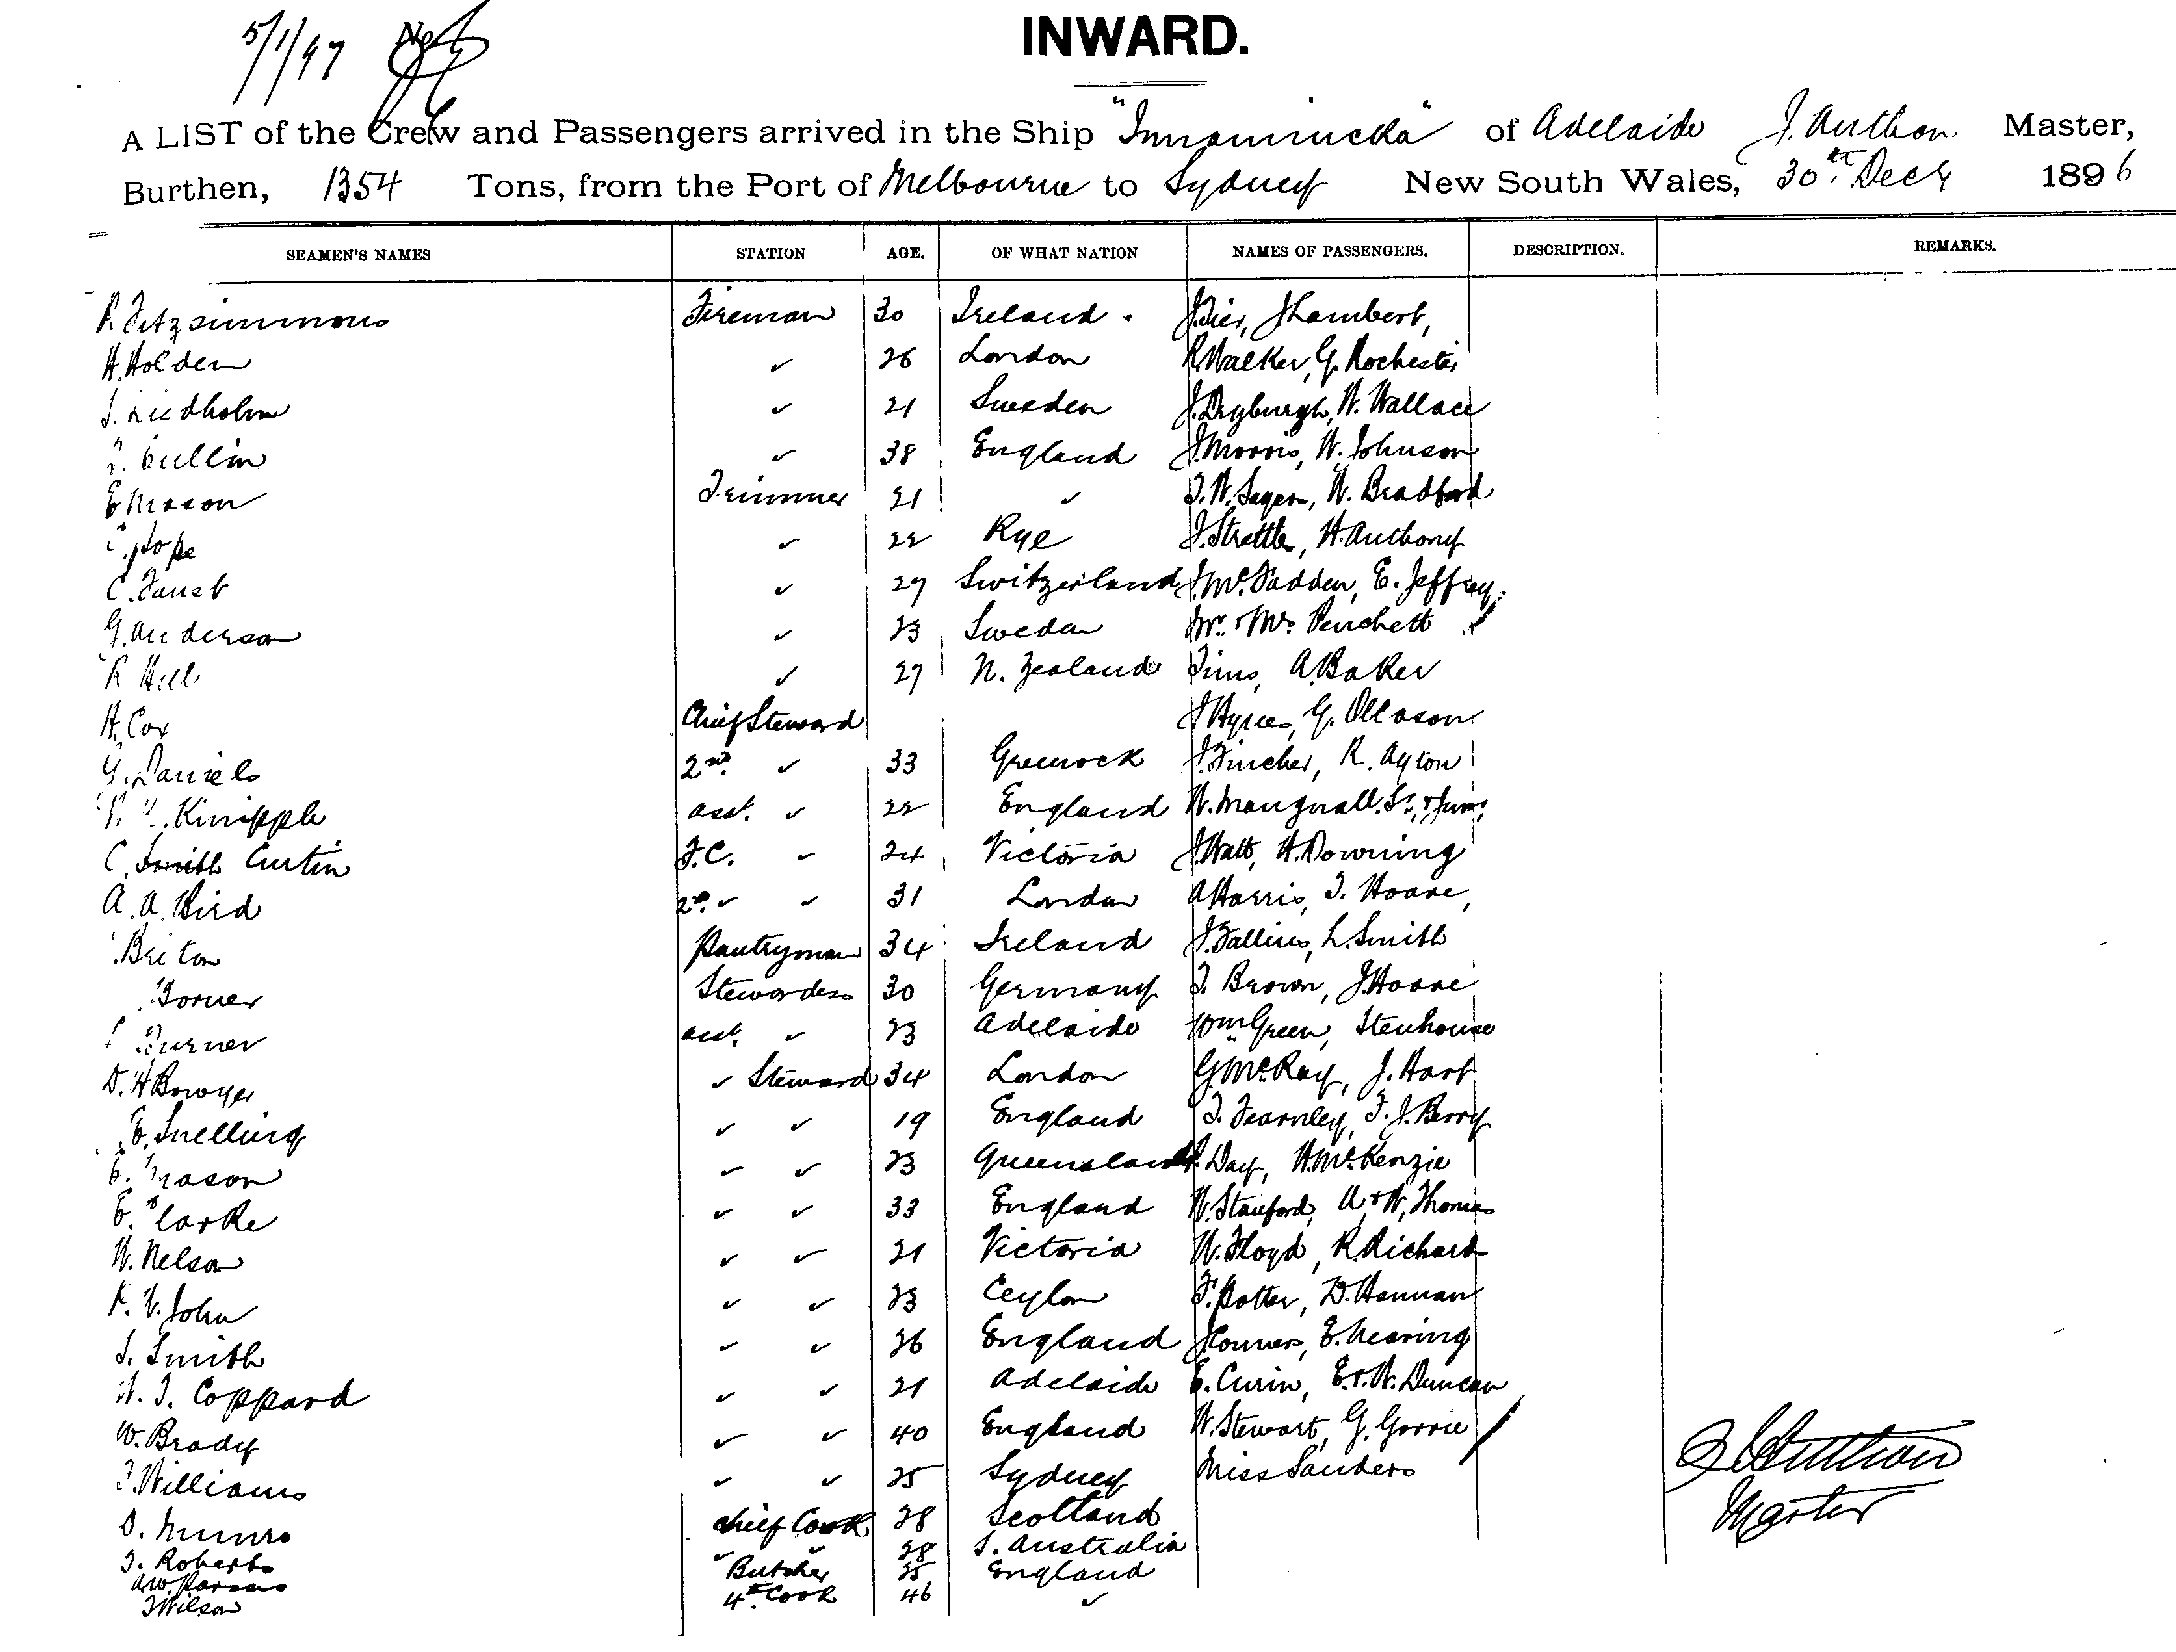 5/1/97
INWARD.
A LIST of the Crew and Passengers arrived in the Ship "Innamincka" of Adelaide J. Anthon Master,
Burthen, 1354 Tons, from the Port of Melbourne to Sydney New South Wales, 30th Dec 1896
SEAMEN'S NAMES STATION AGE. OF WHAT NATION NAMES OF PASSENGERS. DESCRIPTION. REMARKS.
R Fitzsimmons Fireman 30 Ireland. J. Lambert,
H. Holden ✓ 26 London R Walker, G. Rochester
Liedholm ✓ 21 Sweden J. Dryburgh, W. Wallace
✓ 38 England J. Morris, W. Johnson
E Mason Trimmer 21 ✓ T. W. Sayers, W. Bradford
Pope ✓ 22 Rye J. Strettle, H. Anthony
C. Faust ✓ 27 Switzerland J. McFadden, E. Jeffrey,
G. Anderson ✓ 23 Sweden Mr. & Mrs. Penchett
R Hill ✓ 27 N. Zealand Tims, A. Baker
H. Cox Chief Steward J Hynes, G. Ollason
G. Daniels 2nd ✓ 33 Greenock J. Fincher, R. Ayton
Knipple asst. ✓ 22 England W. Mangnall Sr. & Junr.
C. Smith Curtin F.C. ✓ 24 Victoria J Watt, H. Downing
A. A. Bird 2nd ✓ ✓ 31 London A Harris, T. Hoare,
Briton Pantryman 34 Ireland J. Fallins, L. Smith
Stewardess 30 Germany T. Brown, J. Hoare
asst. ✓ 23 Adelaide Wm Green, Stenhouse
D. H Bowyer ✓ Steward 34 London G. McRay, J. Hart
E. Snelling ✓ ✓ 19 England T. Fearnley, F. J. Berry
E. Mason ✓ ✓ 23 Queensland Day, H. McKenzie
E. Clarke ✓ ✓ 33 England W. Stanford, A. & W. Thomas
W. Nelson ✓ ✓ 21 Victoria W. Floyd, R. Richards
John ✓ ✓ 23 Ceylon F. Potter, D. Hannan
S. Smith ✓ ✓ 26 England J Conners, E. Nearing
T. Coppard ✓ ✓ 21 Adelaide E. Curin, E. & W. Duncan
W. Brady ✓ ✓ 40 England W. Stewart, G. Gorrie
T. Williams ✓ ✓ 25 Sydney Miss Sanders
D. Munro Chief Cook 28 Scotland
T. Roberts ✓ ✓ 28 S. Australia
A W. Parsons Butcher 25 England
J Wilson 4th Cook 46 ✓
Master